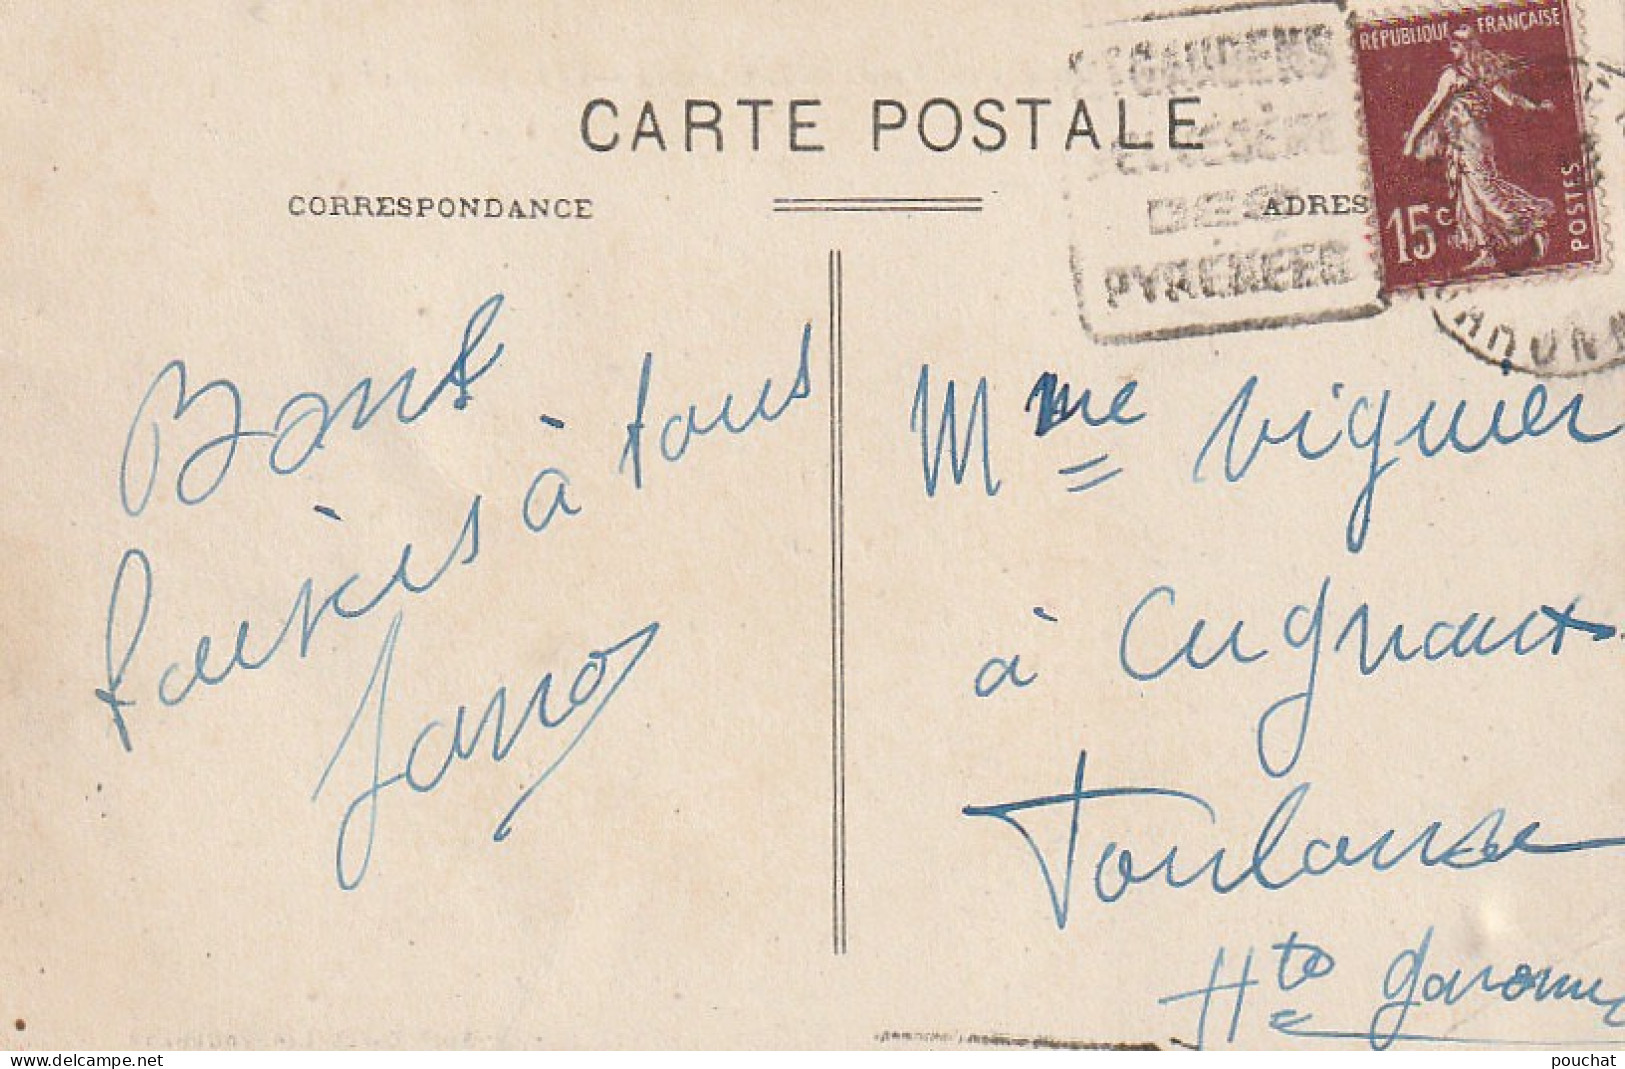 CARTE POSTALE
CORRESPONDANCE
ADRES
ST GAUDENS
DES
PYRÉNÉES
RÉPUBLIQUE FRANÇAISE
15c
POSTES
Bons
baisers à tous
Jano
Mme Viguier
à Cugnaux
Toulouse
Hte Garonne
pouchat